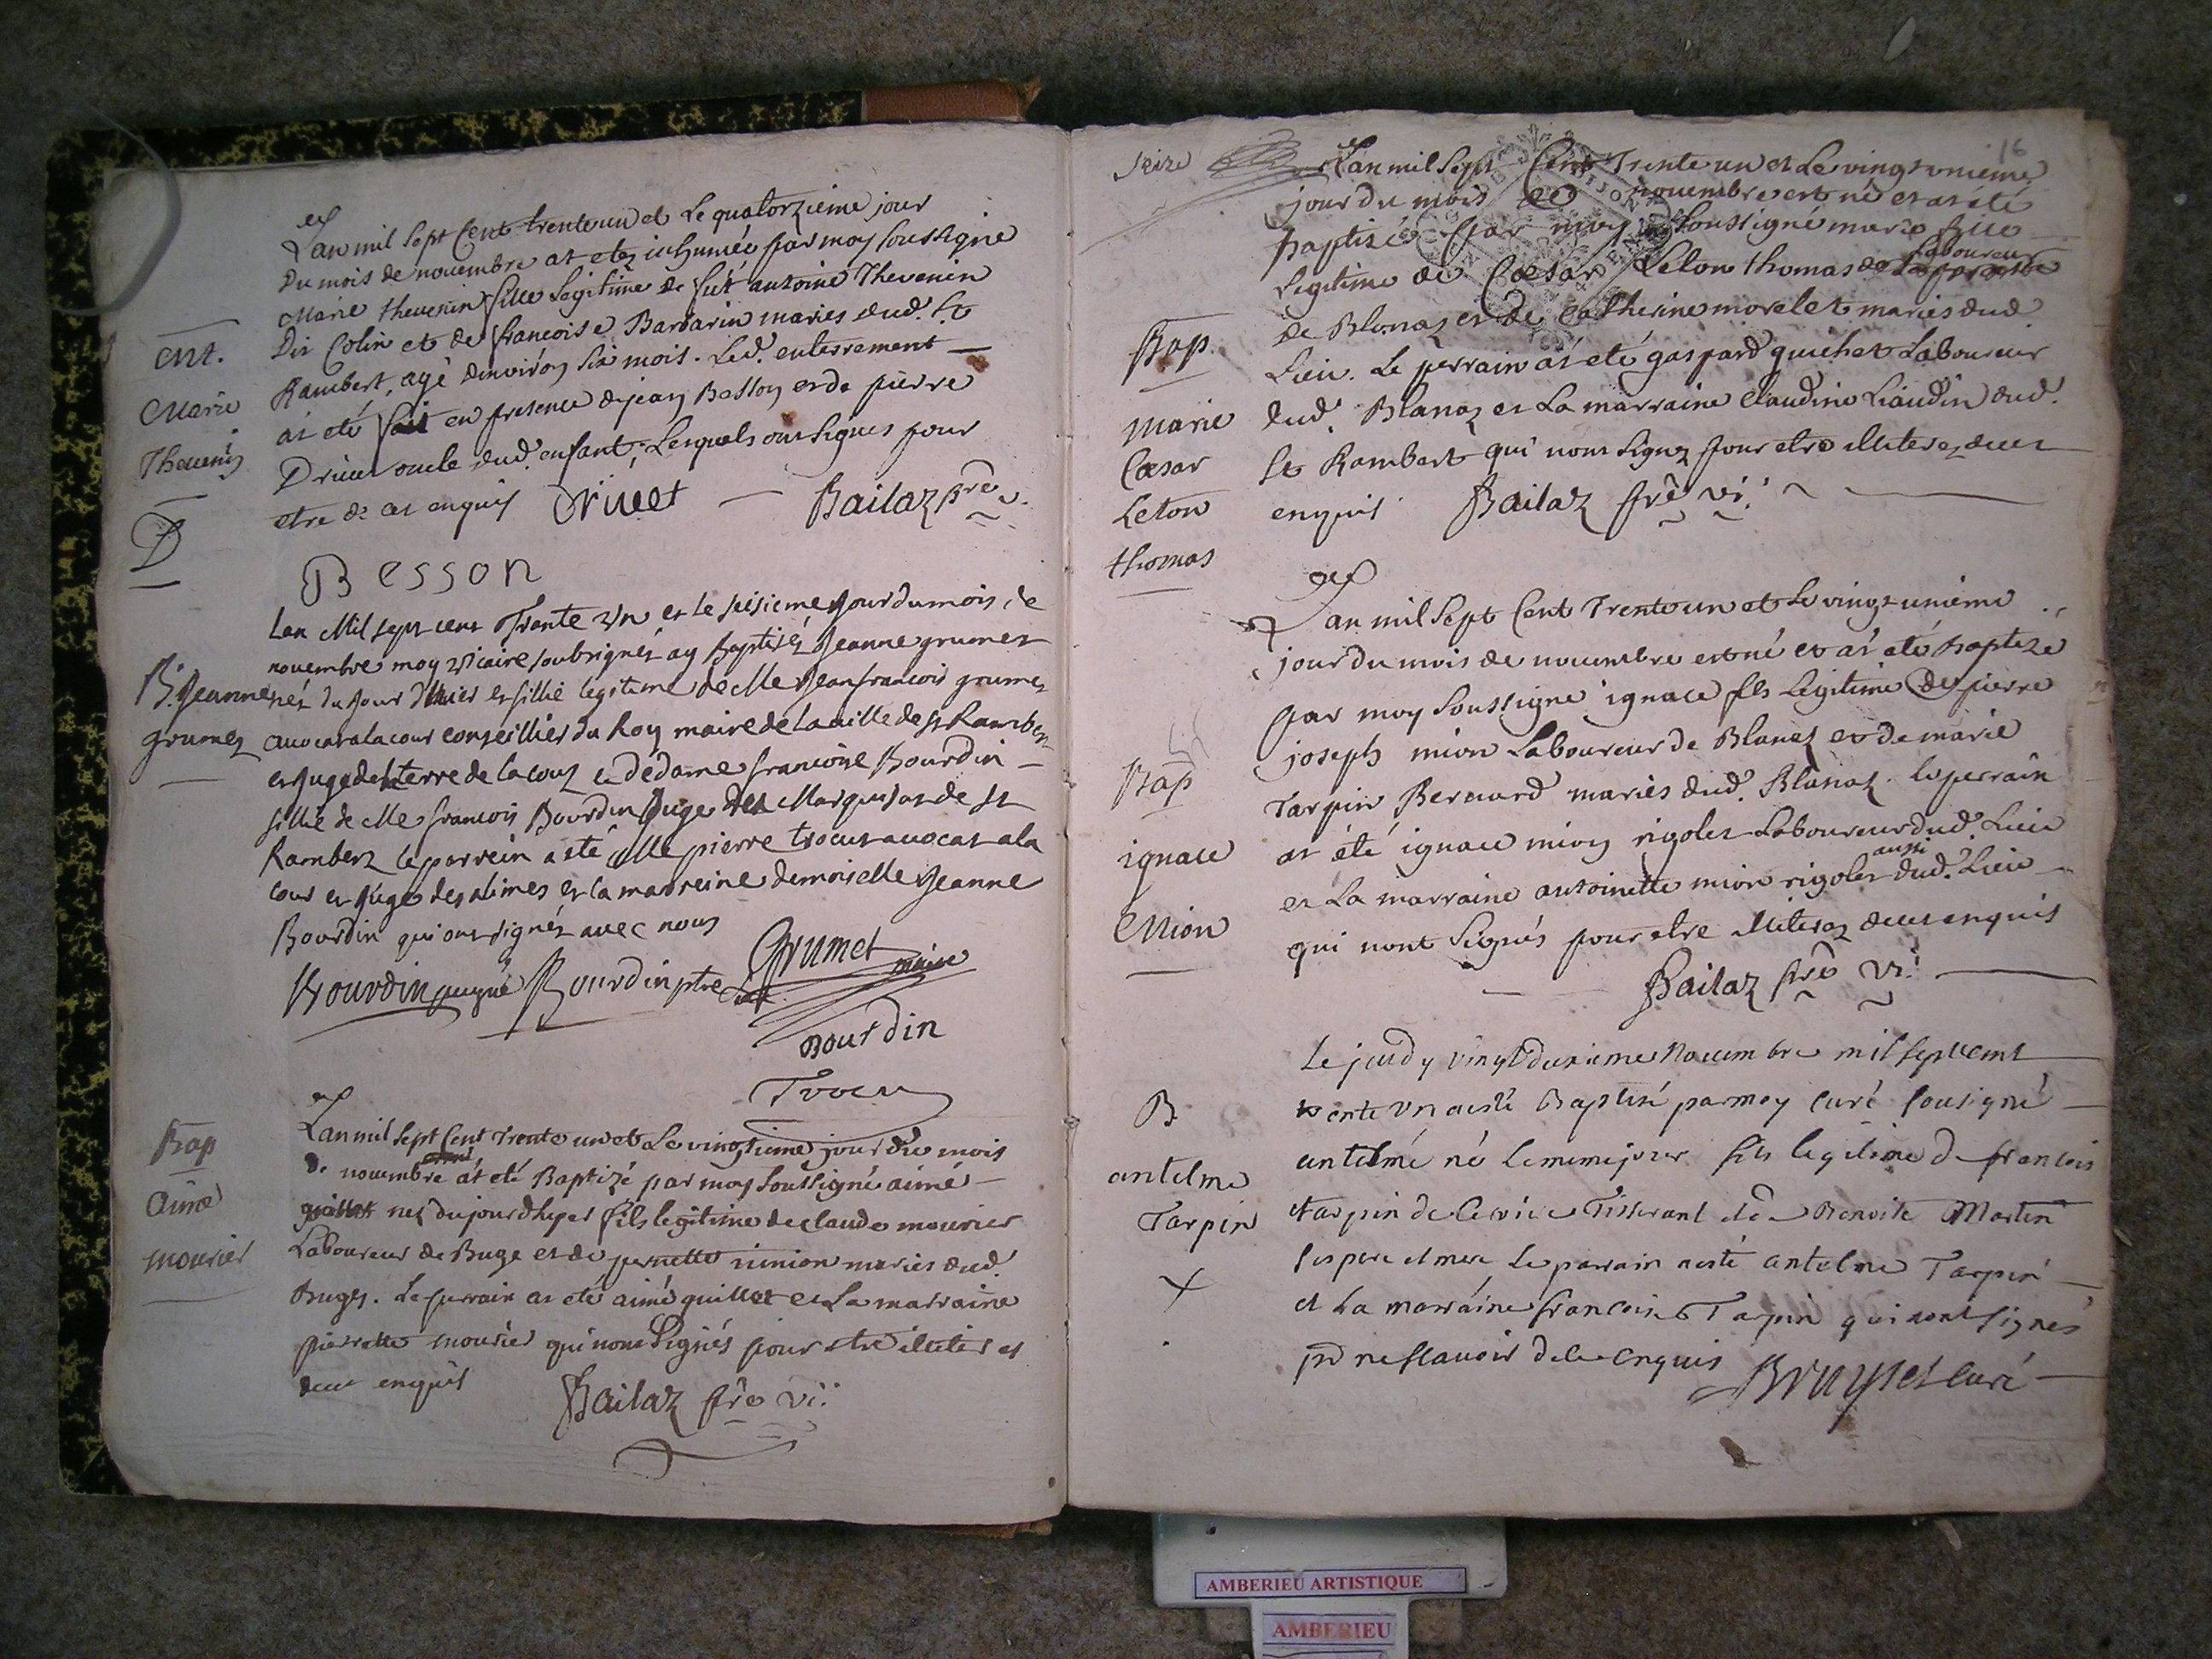 Lan mil sept Cent trente un et Le quatorzieme jour
Du mois de novembre at etez inhumée par moy soussigné
Marie thevenin fille Legitime de fut antoine Thevenin
Dit Colin et de francoise Barbarin maries dud. St
Rambert, agé denviron six mois. Led. enterrement
at eté fait en presence de jean Besson et de pierre
Drivet oncle dud. enfant, Lesquels ont signes pour
etre de ce enquis Drivet Bailaz prê v.
Besson
ent.
Marie
Thevenin
D
Lan Mil sept cent Trante Un et le seisieme jour du mois de
novembre moy Vicaire soubsignéz ay Baptiséz Jeanne grumet
néz du jour d'hier et fillie legitime de Me Jean francois grumet
avocat a la cour conseillier du Roy maire de la ville de St Rambert
et juge de la terre de la couz et de dame francoise Bourdin
fillie de Me francois Bourdin Juge du Marquisat de St
Rambert le parrein a sté Me pierre trocu avocat a la
cour et juge des alimes et la marreine demoiselle Jeanne
Bourdin qui ont signéz avec nous
B. Jeanne
grumez
Bourdin Bourdin ptre Grumet maire
Bourdin
Trocu
Lan mil sept Cent Trente un et Le vingtieme jour du mois
de novembre at eté Baptizé par moy soussigné aimé
nez du jour dhyer fils legitime de claude mourier
Laboureur de Buge et de pernette ninion maries dud.
Buges. Le parrain at eté aimé guillet et La marraine
pierrette mourier qui nont signés pour etre illiteres et
deut enquis Bailaz prê vi:
Bap
aimé
mourier
seize
16
Lan mil sept Cent Trente un et Le vingt unieme
jour du mois de novembre est né et at eté
baptizé par moy soussigné marie fils
Legitime de Cæsar Leton thomas Laboureur
de Blanaz et de Catherine morelet maries dud.
Lieu. Le perrain at eté gaspard guichet Laboureur
dud. Blanaz et La marraine Claudine Liaudin dud.
St Rambert qui nont signez pour etre illiterez deut
enquis Bailaz prê vi:
Bap
Marie
Cæsar
Leton
thomas
Lan mil sept Cent Trente un et Le vingt unieme
jour du mois de novembre est né et at eté baptizé
par moy soussigné ignace fils Legitime de pierre
joseph mion Laboureur de Blanaz et de marie
Tarpin Bernard mariés dud. Blanaz. Le perrain
at été ignace mion rigolet Laboureur dud. Lieu
et La marraine antoinette mion rigolet aussi dud. Lieu
qui nont signés pour etre illiterez deut enquis
Bailaz prê vi:
Bap
ignace
Mion
Le jeudy vingt deuxieme Novembre mil sept cent
trente un a esté Baptisé par moy curé sousigné
antelme né le meme jour fils legitime de francois
tarpin de Tisserant et de Benoite Martin
ses pere et mere Le parrain a esté antelme Tarpin
et La marraine francoise Tarpin qui nont signés
pr ne scavoir de ce enquis Bruyset curé
B
antelme
Tarpin
AMBERIEU ARTISTIQUE
AMBERIEU